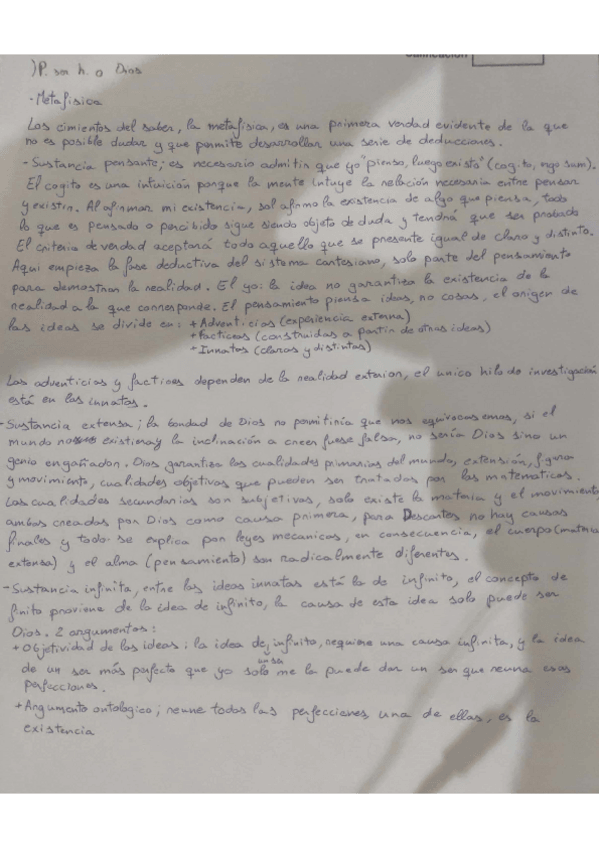 )P. ser h. o Dios
- Metafísica
Los cimientos del saber, la metafísica, es una primera verdad evidente de la que
no es posible dudar y que permite desarrollar una serie de deducciones.
- Sustancia pensante; es necesario admitir que yo "pienso, luego existo" (cogito, ergo sum).
El cogito es una intuición porque la mente intuye la relación necesaria entre pensar
y existir. Al afirmar mi existencia, sol afirmo la existencia de algo que piensa, todo
lo que es pensado o percibido sigue siendo objeto de duda y tendrá que ser probado
El criterio de verdad aceptará todo aquello que se presente igual de claro y distinto.
Aqui empieza la fase deductiva del sistema cartesiano, solo parte del pensamiento
para demostrar la realidad. El yo: la idea no garantiza la existencia de la
realidad a la que corresponde. El pensamiento piensa ideas, no cosas, el origen de
las ideas se divide en: + Adventicias (experiencia externa)
+ Facticias (construidas a partir de otras ideas)
+ Innatas (claras y distintas)
Las adventicias y facticias dependen de la realidad exterior, el unico hilo de investigación
está en las innatas.
- Sustancia extensa; la bondad de Dios no permitiría que nos equivocasemos, si el
mundo no existiera y la inclinación a creer fuese falso, no sería Dios sino un
genio engañador. Dios garantiza las cualidades primarias del mundo, extensión, figura
y movimiento, cualidades objetivas que pueden ser tratadas por las matematicas.
Las cualidades secundarias son subjetivas, solo existe la materia y el movimiento,
ambas creadas por Dios como causa primera, para Descartes no hay causas
finales y todo se explica por leyes mecanicas, en consecuencia, el cuerpo (materia
extensa) y el alma (pensamiento) son radicalmente diferentes.
- Sustancia infinita, entre las ideas innatas está la de infinito, el concepto de
finito proviene de la idea de infinito, la causa de esta idea solo puede ser
Dios. 2 argumentos:
+ Objetividad de las ideas: la idea de infinito, requiere una causa infinita, y la idea
de un ser más perfecto que yo solo me la puede dar un ser que reuna esas
perfecciones.
+ Argumento ontologico; reune todas las perfecciones, una de ellas, es la
existencia